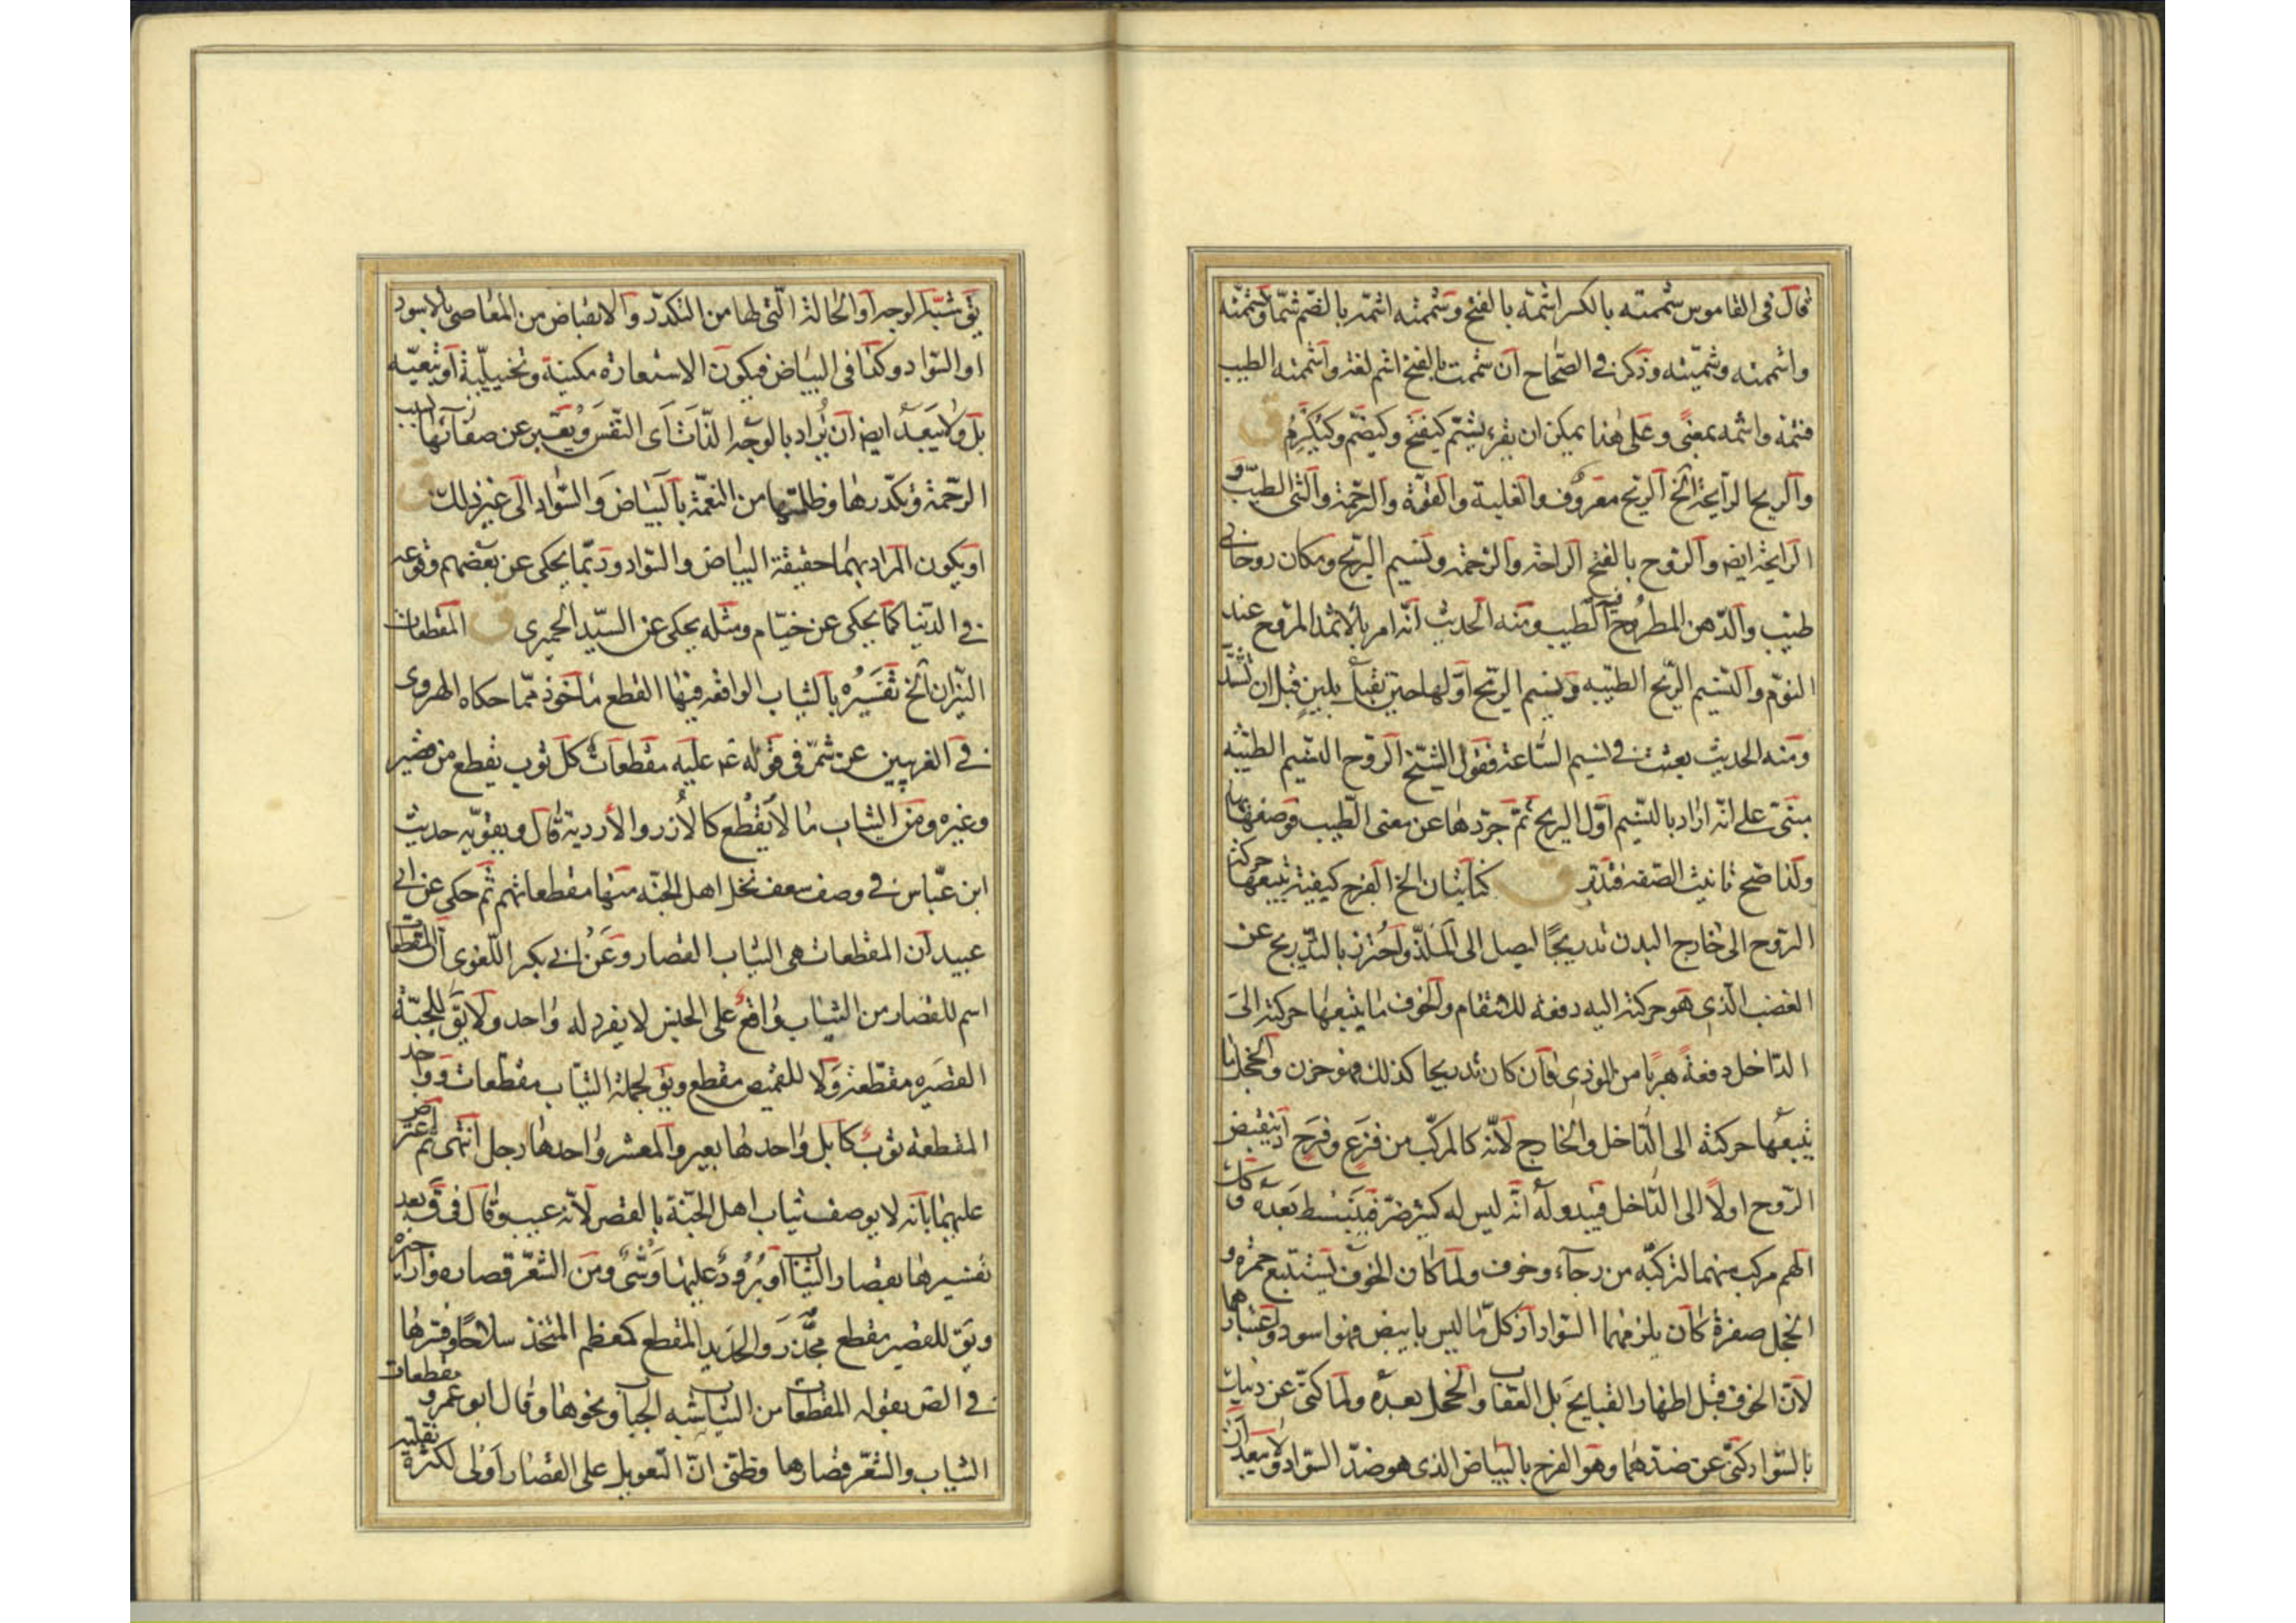 قال فى القاموس شممته بالكسر اشمّه بالفتح وشممته اشمّه بالضّم شمّا وشممّته
واشتممته وشمّيته وذكر فى الصّحاح ان شممت بالفتح اشم لغة واشممته الطيب
فشمّه واشتمه بمعنى وعلى هذا يمكن ان يقرء يشتمّ كيفتح وكيضمّ وكيكرم ق
والريح الرايحة الخ الريح معروف والغلبة والقوّة والرّحمة والشئ الطيّب و
الرايحة ايض والروح بالفتح الراحة والرّحمة ونسيم الريح ومكان روحانى
طيّب والدّهن المطروح فيه الطيب ومنه الحديث انّه امر بالاثمد المروّح عند
النوم والنسيم الريح الطيّبه ونسيم الريح اوّلها حين تقبل بلين قبل ان تشتدّ
ومنه الحديث بعثت فى نسيم السّاعة فقول الشيخ الروح النسيم الطيّبه
مبنىّ على انّه اراد بالنسيم اوّل الريح ثمّ جرّدها عن معنى الطّيب فوصفها بها
ولذا صحّ تانيث الصّفة فتدبّر ق كنايتان الخ الفرح كيفيّة يتبعها حركة
الروح الى خارج البدن تدريجًا ليصل الى الملذّ واحترز بالتدريج عن
الغضب الّذى هو حركته اليه دفعة للانتقام والخوف ما يتبعها حركته الى
الدّاخل دفعةً هربًا من الموذى فان كان تدريجا كذلك فهو حزن والخجل ما
يتبعها حركته الى الدّاخل والخارج لانّه كالمركّب من فزع وفرح اذ ينقبض
الرّوح اولًا الى الدّاخل فيبدو له انّه ليس له كثير ضرّ فينبسط بعده وكان
الهم مركب منهما لتركبّه من رجآء وخوف ولما كان الخوف يستتبع حمرة و
الخجل صفرة كان يلزمهما السّواد اذ كلّ ما ليس بابيض فهو اسود واعتبارهما
لانّ الخوف قبل اظهار القبايح بل العقاب والخجل بعده ولما كنّى عن
بالسّواد كنّى عن ضدّهما وهو الفرح بالبياض الذى هو ضدّ السّواد ولا يبعد ان
يق شبّه الوجه او الحالة الّتى لها من التكدّر والانقباض من المعاصى بالاسود
او السّواد وكذا فى البياض فيكون الاستعارة مكنية وتخييليّة او تبعيّه
بل ولا يبعد ايض ان يراد بالوجه الذّات اى النّفس ويعبّر عن صفائها بسبب
الرحمة وتكدّرها وظلمتها من النقمة بالبياض والسّواد الى غير ذلك ق
او يكون المراد بهما حقيقة البياض والسّواد وربّما يحكى عن بعضهم وقوعه
فى الدّنيا كما يحكى عن خيّام ومثله يحكى عن السيّد الحميرى ق المقطعات
النيران الخ تفسيره بالثياب الواقعه فيها القطع ماخوذ ممّا حكاه الهروى
فى الغريبين عن شمر فى قوله ع عليه مقطعات كلّ ثوب يقطع من قميص
وغيره ومن الثياب ما لا يقطع كالازر والاردية قال ويقوّيه حديث
ابن عبّاس فى وصف سعف نخل اهل الجنّه منها مقطعاتهم ثمّ حكى عن ابى
عبيد ان المقطعات هى الثياب القصار وعن ابى بكر اللّغوى ان المقطعات
اسم للقصار من الثياب واقع على الجنس لا يفرد له واحد ولا يق للجبّة
القصيره مقطّعة ولا للقميص مقطع ويق لجملة الثياب مقطّعات وواحد
المقطعة ثوب كابل واحدها بعير والمعشر واحدها رجل انتهى ثم اعترض
عليهما بانّه لا يوصف ثياب اهل الجنّة بالقصر لانّه عيب وقال فى ق بعد
تفسيرها بقصار الثياب او برود عليها وشى ومن الشّعر قصاره واراجيزه
ويق للقصير مقطع مجذّر والحديد المقطع كمعظم المتّخذ سلاحًا وفسّرها
فى الص بقوله المقطعات من الثياب شبه الجباب ونحوها وقال ابو عمرو مقطعات
الثياب والشّعر قصارها وظنّى انّ التّعويل على القصار اولى لكثرة نقله